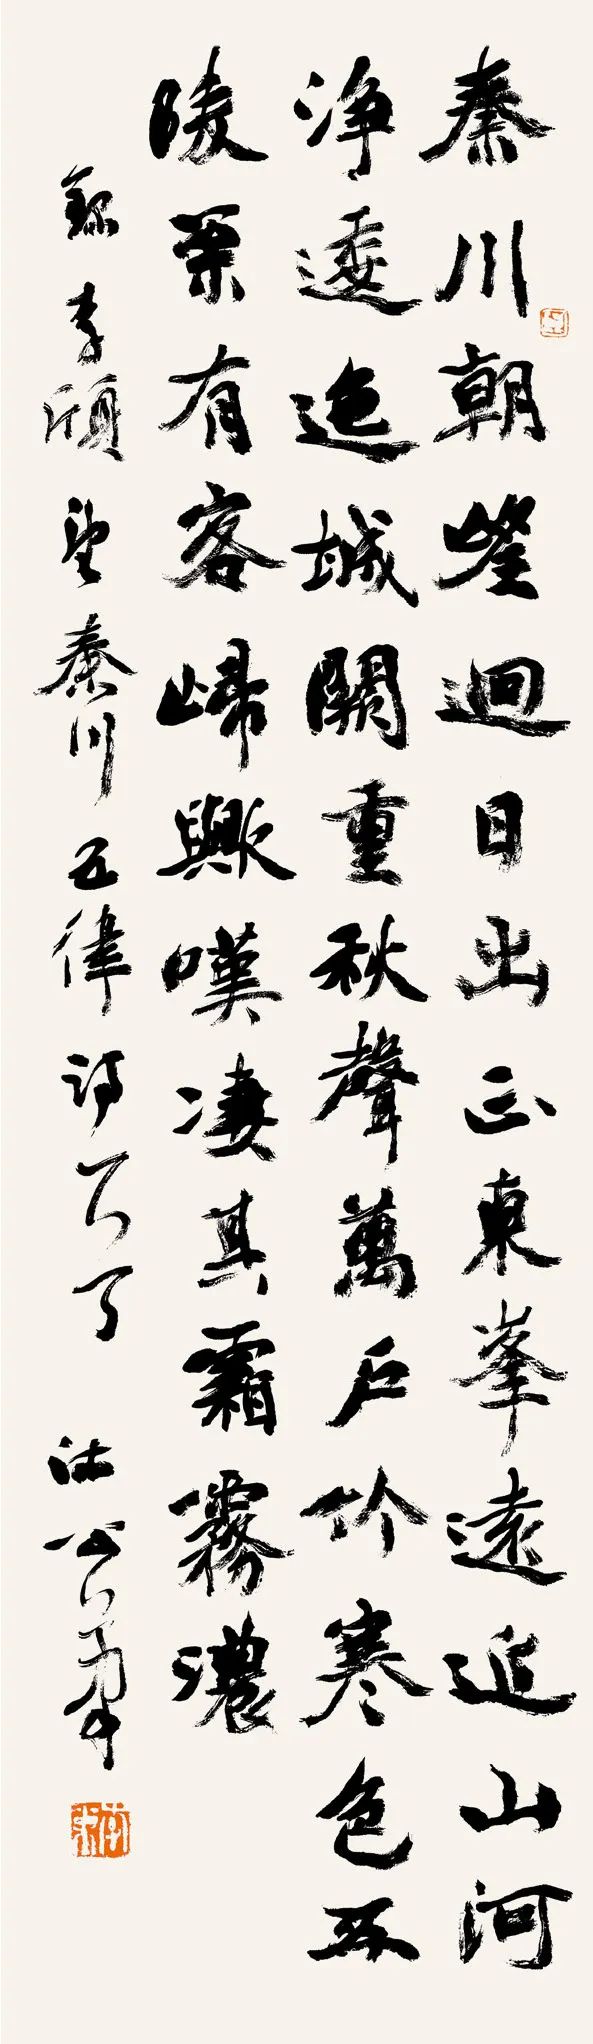 秦川朝望迥日出正東峯遠近山河
浄逶迤城闕重秋聲萬户竹寒色五
陵有客歸歟嘆凄其霜霧濃
錄李頎望秦川五律詩